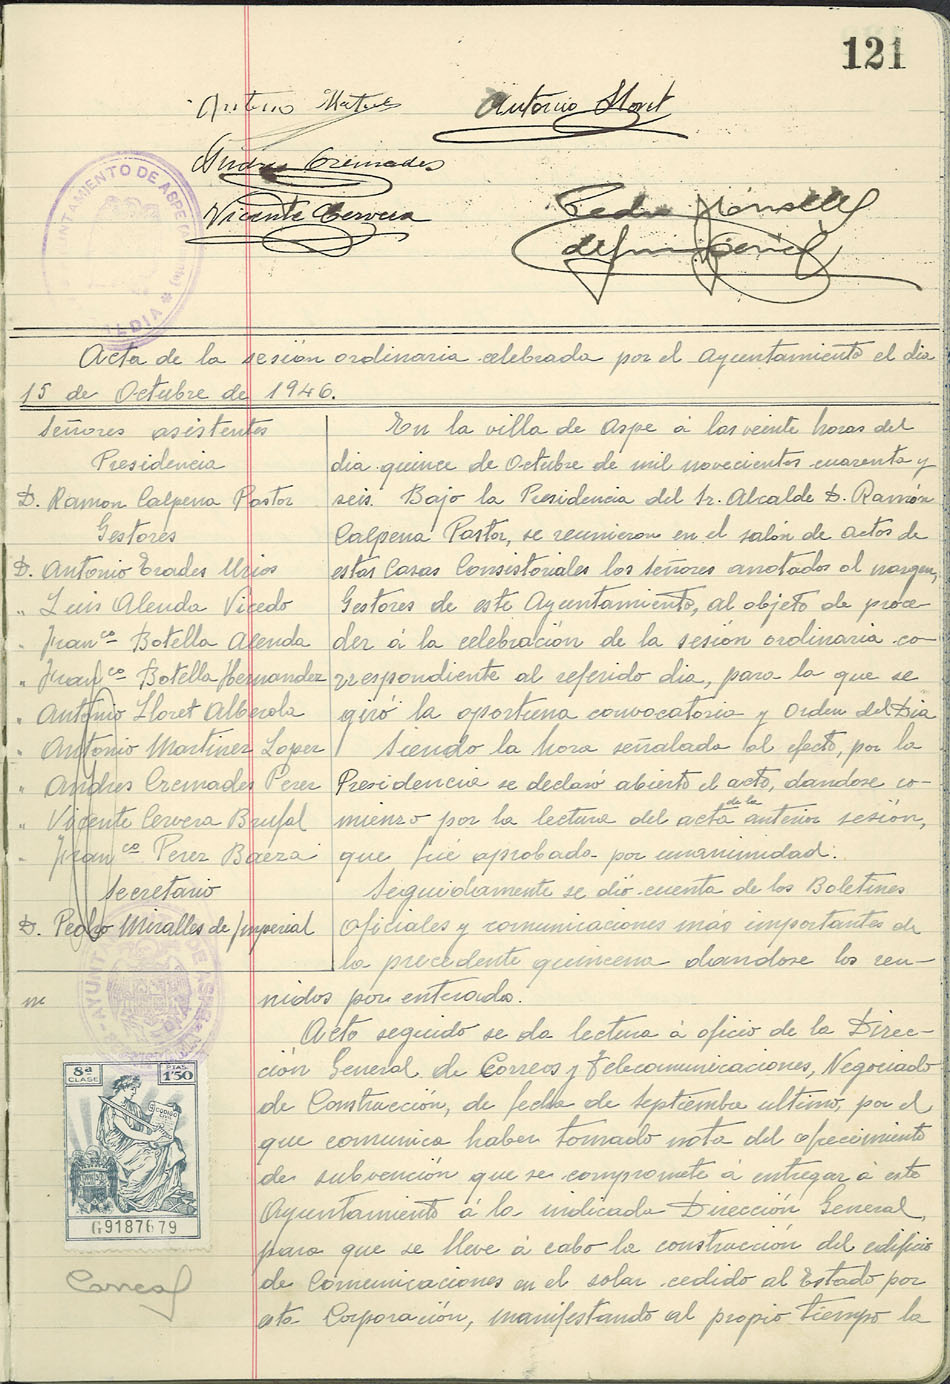 121
Antonio Lloret
Andres Cremades
Vicente Cervera
AYUNTAMIENTO DE ASPE
Acta de la sesión ordinaria celebrada por el Ayuntamiento el dia
15 de Octubre de 1946.
Señores asistentes
Presidencia
D. Ramon Calpena Pastor
Gestores
D. Antonio Erades Urios
" Luis Alenda Vicedo
" Franco Botella Alenda
" Franco Botella Hernandez
" Antonio Lloret Alberola
" Antonio Martinez Lopez
" Andres Cremades Perez
" Vicente Cervera Brufal
" Franco Perez Baeza
Secretario
D. Pedro Miralles de Imperial
En la villa de Aspe á las veinte horas del
dia quince de Octubre de mil novecientos cuarenta y
seis. Bajo la Presidencia del Sr. Alcalde D. Ramón
Calpena Pastor, se reunieron en el salón de actos de
estas Casas Consistoriales los señores anotados al margen,
Gestores de este Ayuntamiento, al objeto de proce-
der á la celebración de la sesión ordinaria co-
rrespondiente al referido dia, para la que se
giró la oportuna convocatoria y Orden del Dia
Siendo la hora señalada al efecto, por la
Presidencia se declaró abierto el acto, dandose co-
mienzo por la lectura del acta de la anterior sesión,
que fué aprobada por unanimidad.
Seguidamente se dió cuenta de los Boletines
Oficiales y comunicaciones más importantes de
la precedente quincena dandose los reu-
nidos por enterado.
Acto seguido se da lectura á oficio de la Direc-
ción General de Correos y Telecomunicaciones, Negociado
de Construcción, de fecha de Septiembre ultimo, por el
que comunica haber tomado nota del ofrecimiento
de subvención que se compromete á entregar á este
Ayuntamiento á la indicada Dirección General,
para que se lleve á cabo la construcción del edificio
de Comunicaciones en el solar cedido al Estado por
esta Corporación, manifestando al propio tiempo la
8ª
CLASE
PTAS.
1'50
G9187679